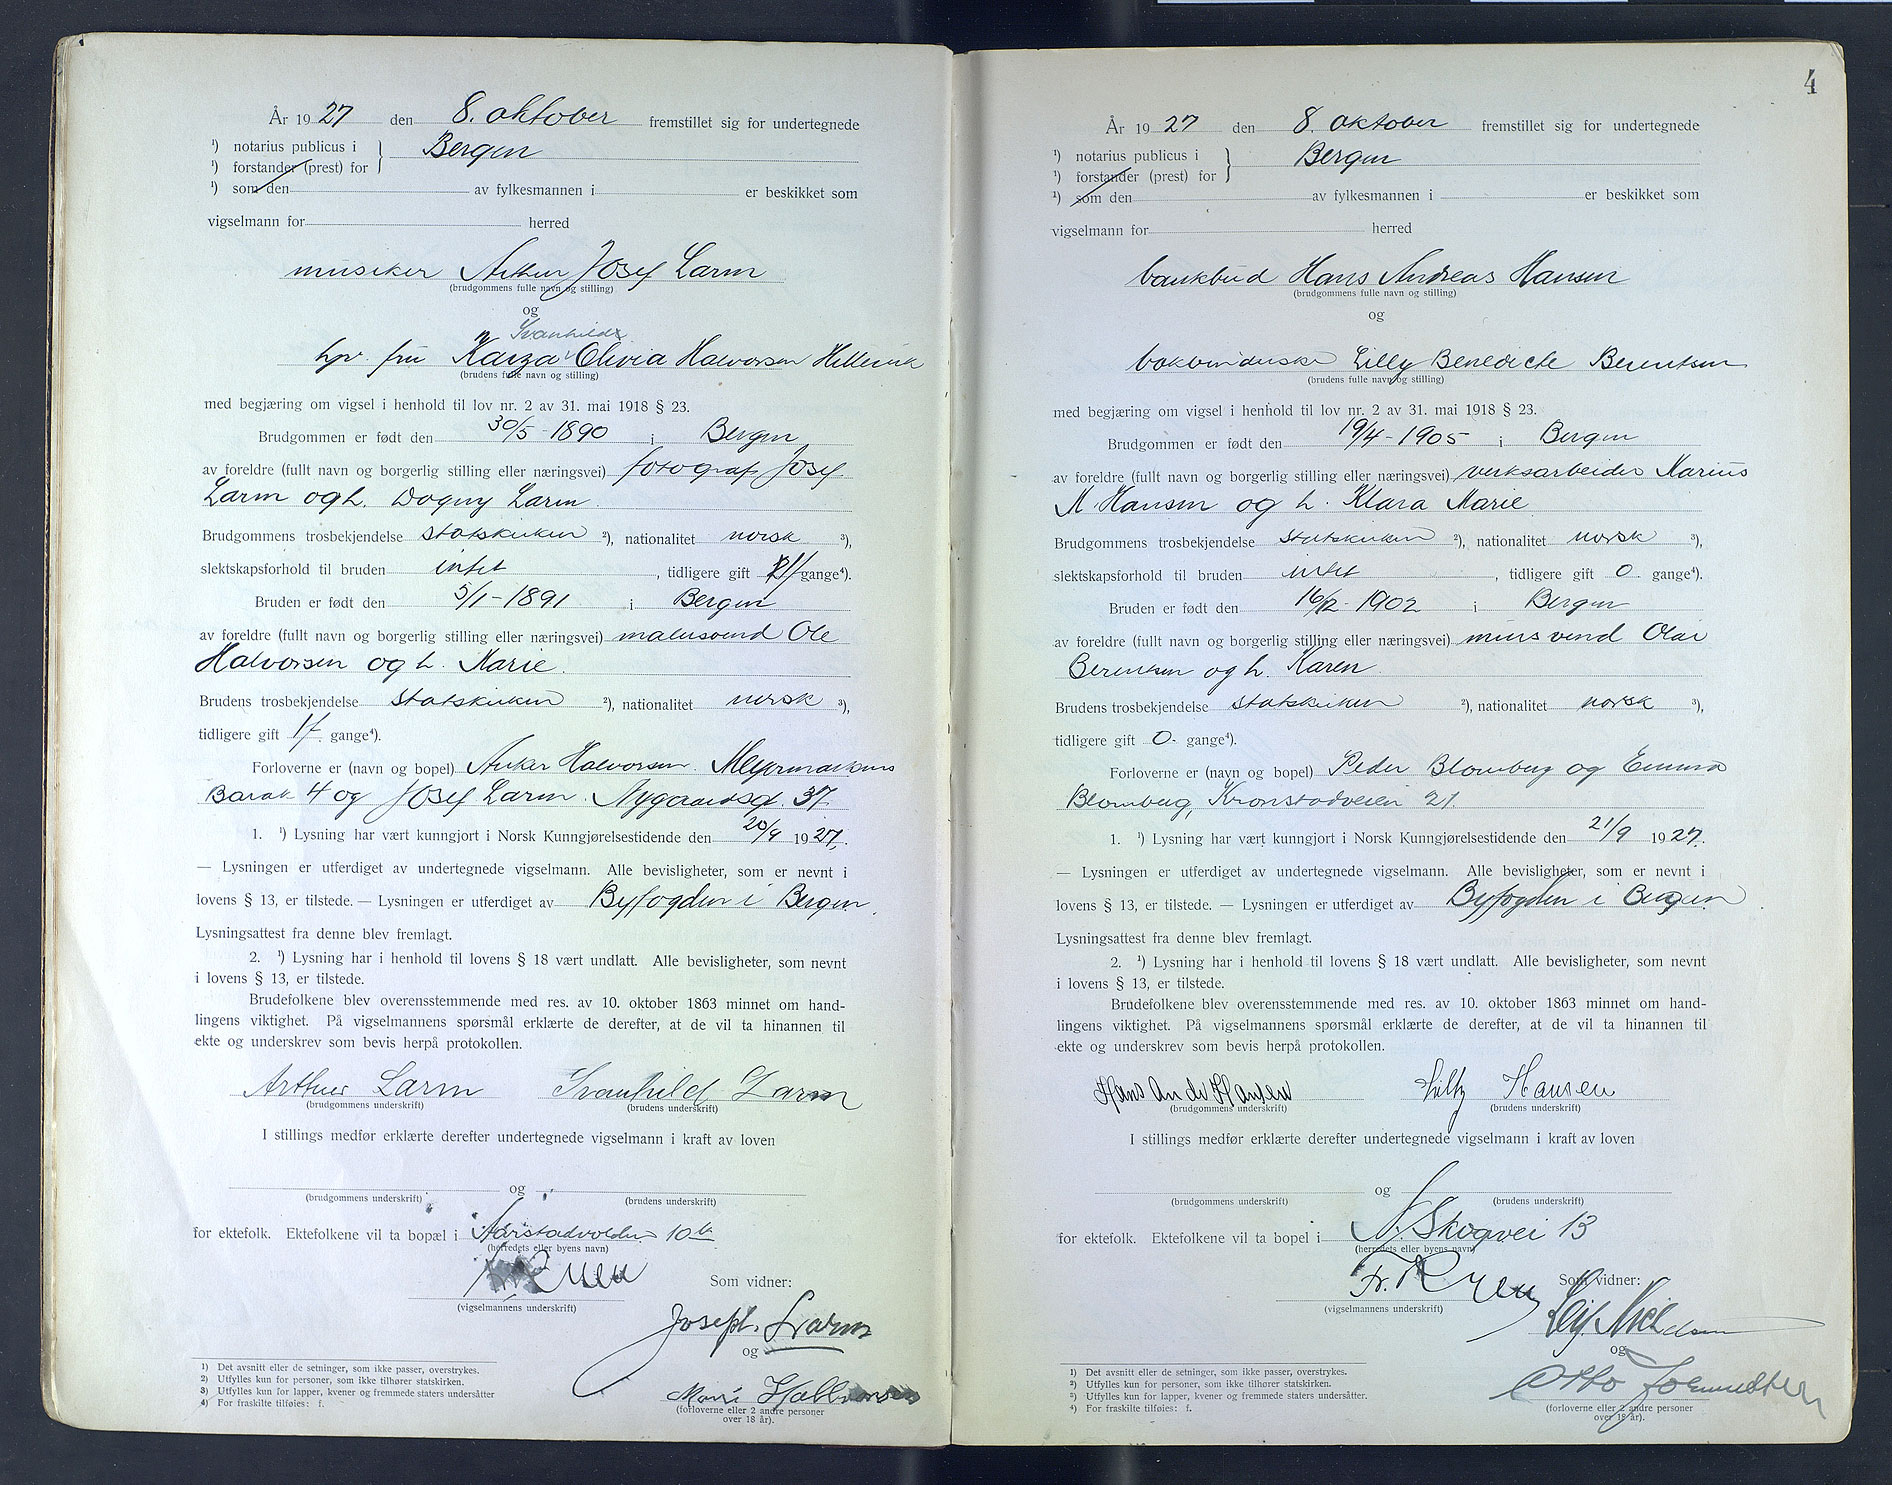 År 1927 den 8. oktober fremstillet sig for undertegnede
¹) notarius publicus i } Bergen
¹) forstander (prest) for
¹) som den av fylkesmannen i er beskikket som
vigselmann for herred
musiker Arthur Josef Larm
(brudgommens fulle navn og stilling)
og
Svanhild
hpv. fru Kaiza Olivia Halvorsen
(brudens fulle navn og stilling)
med begjæring om vigsel i henhold til lov nr. 2 av 31. mai 1918 § 23.
Brudgommen er født den 30/5-1890 i Bergen
av foreldre (fullt navn og borgerlig stilling eller næringsvei) fotograf Josef
Larm og h. Dagny Larm.
Brudgommens trosbekjendelse statskirken ²), nationalitet norsk ³),
slektskapsforhold til bruden intet, tidligere gift 1 f gange⁴).
Bruden er født den 5/1-1891 i Bergen
av foreldre (fullt navn og borgerlig stilling eller næringsvei) malersvend Ole
Halvorsen og h. Marie.
Brudens trosbekjendelse statskirken ²), nationalitet norsk ³),
tidligere gift 1 f. gange⁴).
Forloverne er (navn og bopel) Anker Halvorsen. Meyermarkens
Barak 4 og Josef Larm. Nygaardsg. 37
1. ¹) Lysning har vært kunngjort i Norsk Kunngjørelsestidende den 20/9 1927.
— Lysningen er utferdiget av undertegnede vigselmann. Alle bevisligheter, som er nevnt i
lovens § 13, er tilstede. — Lysningen er utferdiget av Byfogden i Bergen.
Lysningsattest fra denne blev fremlagt.
2. ¹) Lysning har i henhold til lovens § 18 vært undlatt. Alle bevisligheter, som nevnt
i lovens § 13, er tilstede.
Brudefolkene blev overensstemmende med res. av 10. oktober 1863 minnet om hand-
lingens viktighet. På vigselmannens spørsmål erklærte de derefter, at de vil ta hinannen til
ekte og underskrev som bevis herpå protokollen.
Arthur Larm Svanhild Larm
(brudgommens underskrift) (brudens underskrift)
I stillings medfør erklærte derefter undertegnede vigselmann i kraft av loven
og
(brudgommens underskrift) (brudens underskrift)
for ektefolk. Ektefolkene vil ta bopæl i Aarstadvolden 10 b
(herredets eller byens navn)
Som vidner:
(vigselmannens underskrift)
Joseph. Larm
og
Marie Halvorsen
(forloverne eller 2 andre personer
over 18 år).
1) Det avsnitt eller de setninger, som ikke passer, overstrykes.
2) Utfylles kun for personer, som ikke tilhører statskirken.
3) Utfylles kun for lapper, kvener og fremmede staters undersåtter
4) For fraskilte tilføies: f.
4
År 1927 den 8. oktober fremstillet sig for undertegnede
¹) notarius publicus i } Bergen
¹) forstander (prest) for
¹) som den av fylkesmannen i er beskikket som
vigselmann for herred
bankbud Hans Andreas Hansen
(brudgommens fulle navn og stilling)
og
bokbinderske Lilly Benedicte Berentsen
(brudens fulle navn og stilling)
med begjæring om vigsel i henhold til lov nr. 2 av 31. mai 1918 § 23.
Brudgommen er født den 19/4-1905 i Bergen
av foreldre (fullt navn og borgerlig stilling eller næringsvei) verksarbeider Marius
M. Hansen og h. Klara Marie
Brudgommens trosbekjendelse statskirken ²), nationalitet norsk ³),
slektskapsforhold til bruden intet, tidligere gift 0 gange⁴).
Bruden er født den 16/12-1902 i Bergen
av foreldre (fullt navn og borgerlig stilling eller næringsvei) mursvend Olai
Berentsen og h. Karen
Brudens trosbekjendelse statskirken ²), nationalitet norsk ³),
tidligere gift 0 gange⁴).
Forloverne er (navn og bopel) Peder Blomberg og Emma
Blomberg, Kronstadveien 21
1. ¹) Lysning har vært kunngjort i Norsk Kunngjørelsestidende den 21/9 1927.
— Lysningen er utferdiget av undertegnede vigselmann. Alle bevisligheter, som er nevnt i
lovens § 13, er tilstede. — Lysningen er utferdiget av Byfogden i Bergen.
Lysningsattest fra denne blev fremlagt.
2. ¹) Lysning har i henhold til lovens § 18 vært undlatt. Alle bevisligheter, som nevnt
i lovens § 13, er tilstede.
Brudefolkene blev overensstemmende med res. av 10. oktober 1863 minnet om hand-
lingens viktighet. På vigselmannens spørsmål erklærte de derefter, at de vil ta hinannen til
ekte og underskrev som bevis herpå protokollen.
Hans Andr Hansen Lilly Hansen
(brudgommens underskrift) (brudens underskrift)
I stillings medfør erklærte derefter undertegnede vigselmann i kraft av loven
og
(brudgommens underskrift) (brudens underskrift)
for ektefolk. Ektefolkene vil ta bopel i N. Skogvei 13
(herredets eller byens navn)
Fr. Som vidner:
(vigselmannens underskrift)
Leif. Nielsen
og
Otto
(forloverne eller 2 andre personer
over 18 år).
¹) Det avsnitt eller de setninger, som ikke passer, overstrykes.
²) Utfylles kun for personer, som ikke tilhører statskirken.
³) Utfylles kun for lapper, kvener og fremmede staters undersåtter.
⁴) For fraskilte tilføies: f.